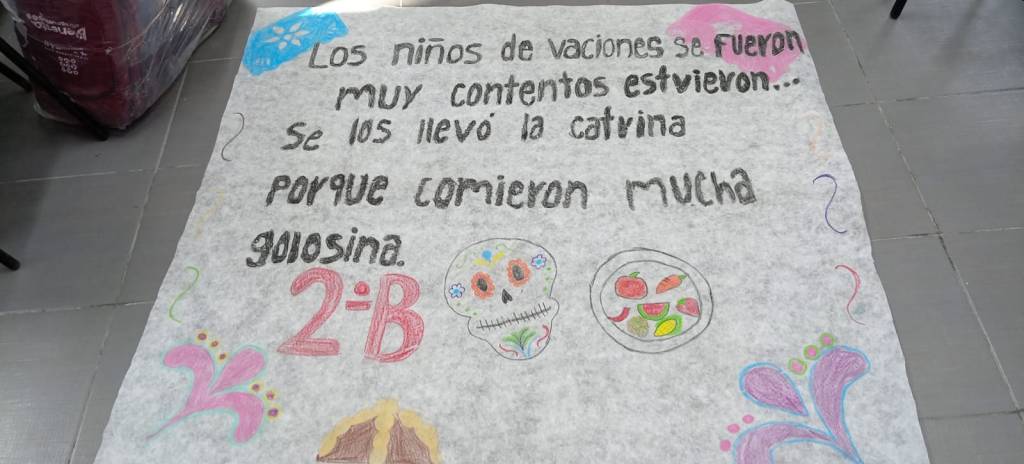 Los niños de vaciones se fueron
muy contentos estvieron...
Se los llevó la catrina
Porque comieron mucha
golosina.
2°B